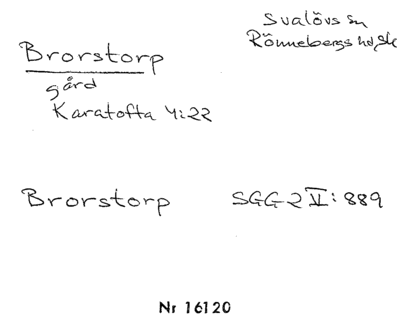 Svalövs sn
Rönnebergs hd, Sk
Brorstorp
gård
Karatofta 4:22
Brorstorp SGG 2 V: 889
Nr 16120